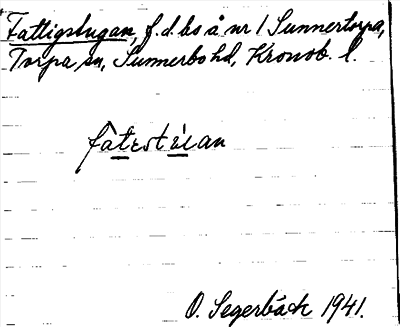 Fattigstugan, f.d. bs å nr 1 Sunnertorpa,
Torpa sn, Sunnerbo hd, Kronob. l.
O. Segerbäck 1941.